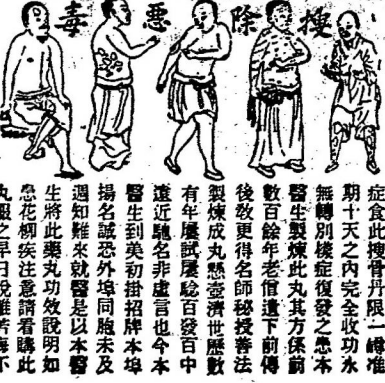 搜除惡毒
症食此搜骨丹限一禮准
期十天之內完全收功永
無轉別樣症復發之患本
醫生製煉此丸其方係前
數百餘年老僧遺下前傳
後敎更得名師秘授善法
製煉成丸懸壺濟世歷數
有年屢試屢驗百發百中
遠近馳名非虛言也今本
醫生到美初掛招牌本埠
揚名誠恐外埠同胞未及
週知難來就醫是以本醫
生將此藥丸功效說明如
患花柳疾注意請看購此
丸服之早日脫離苦海不